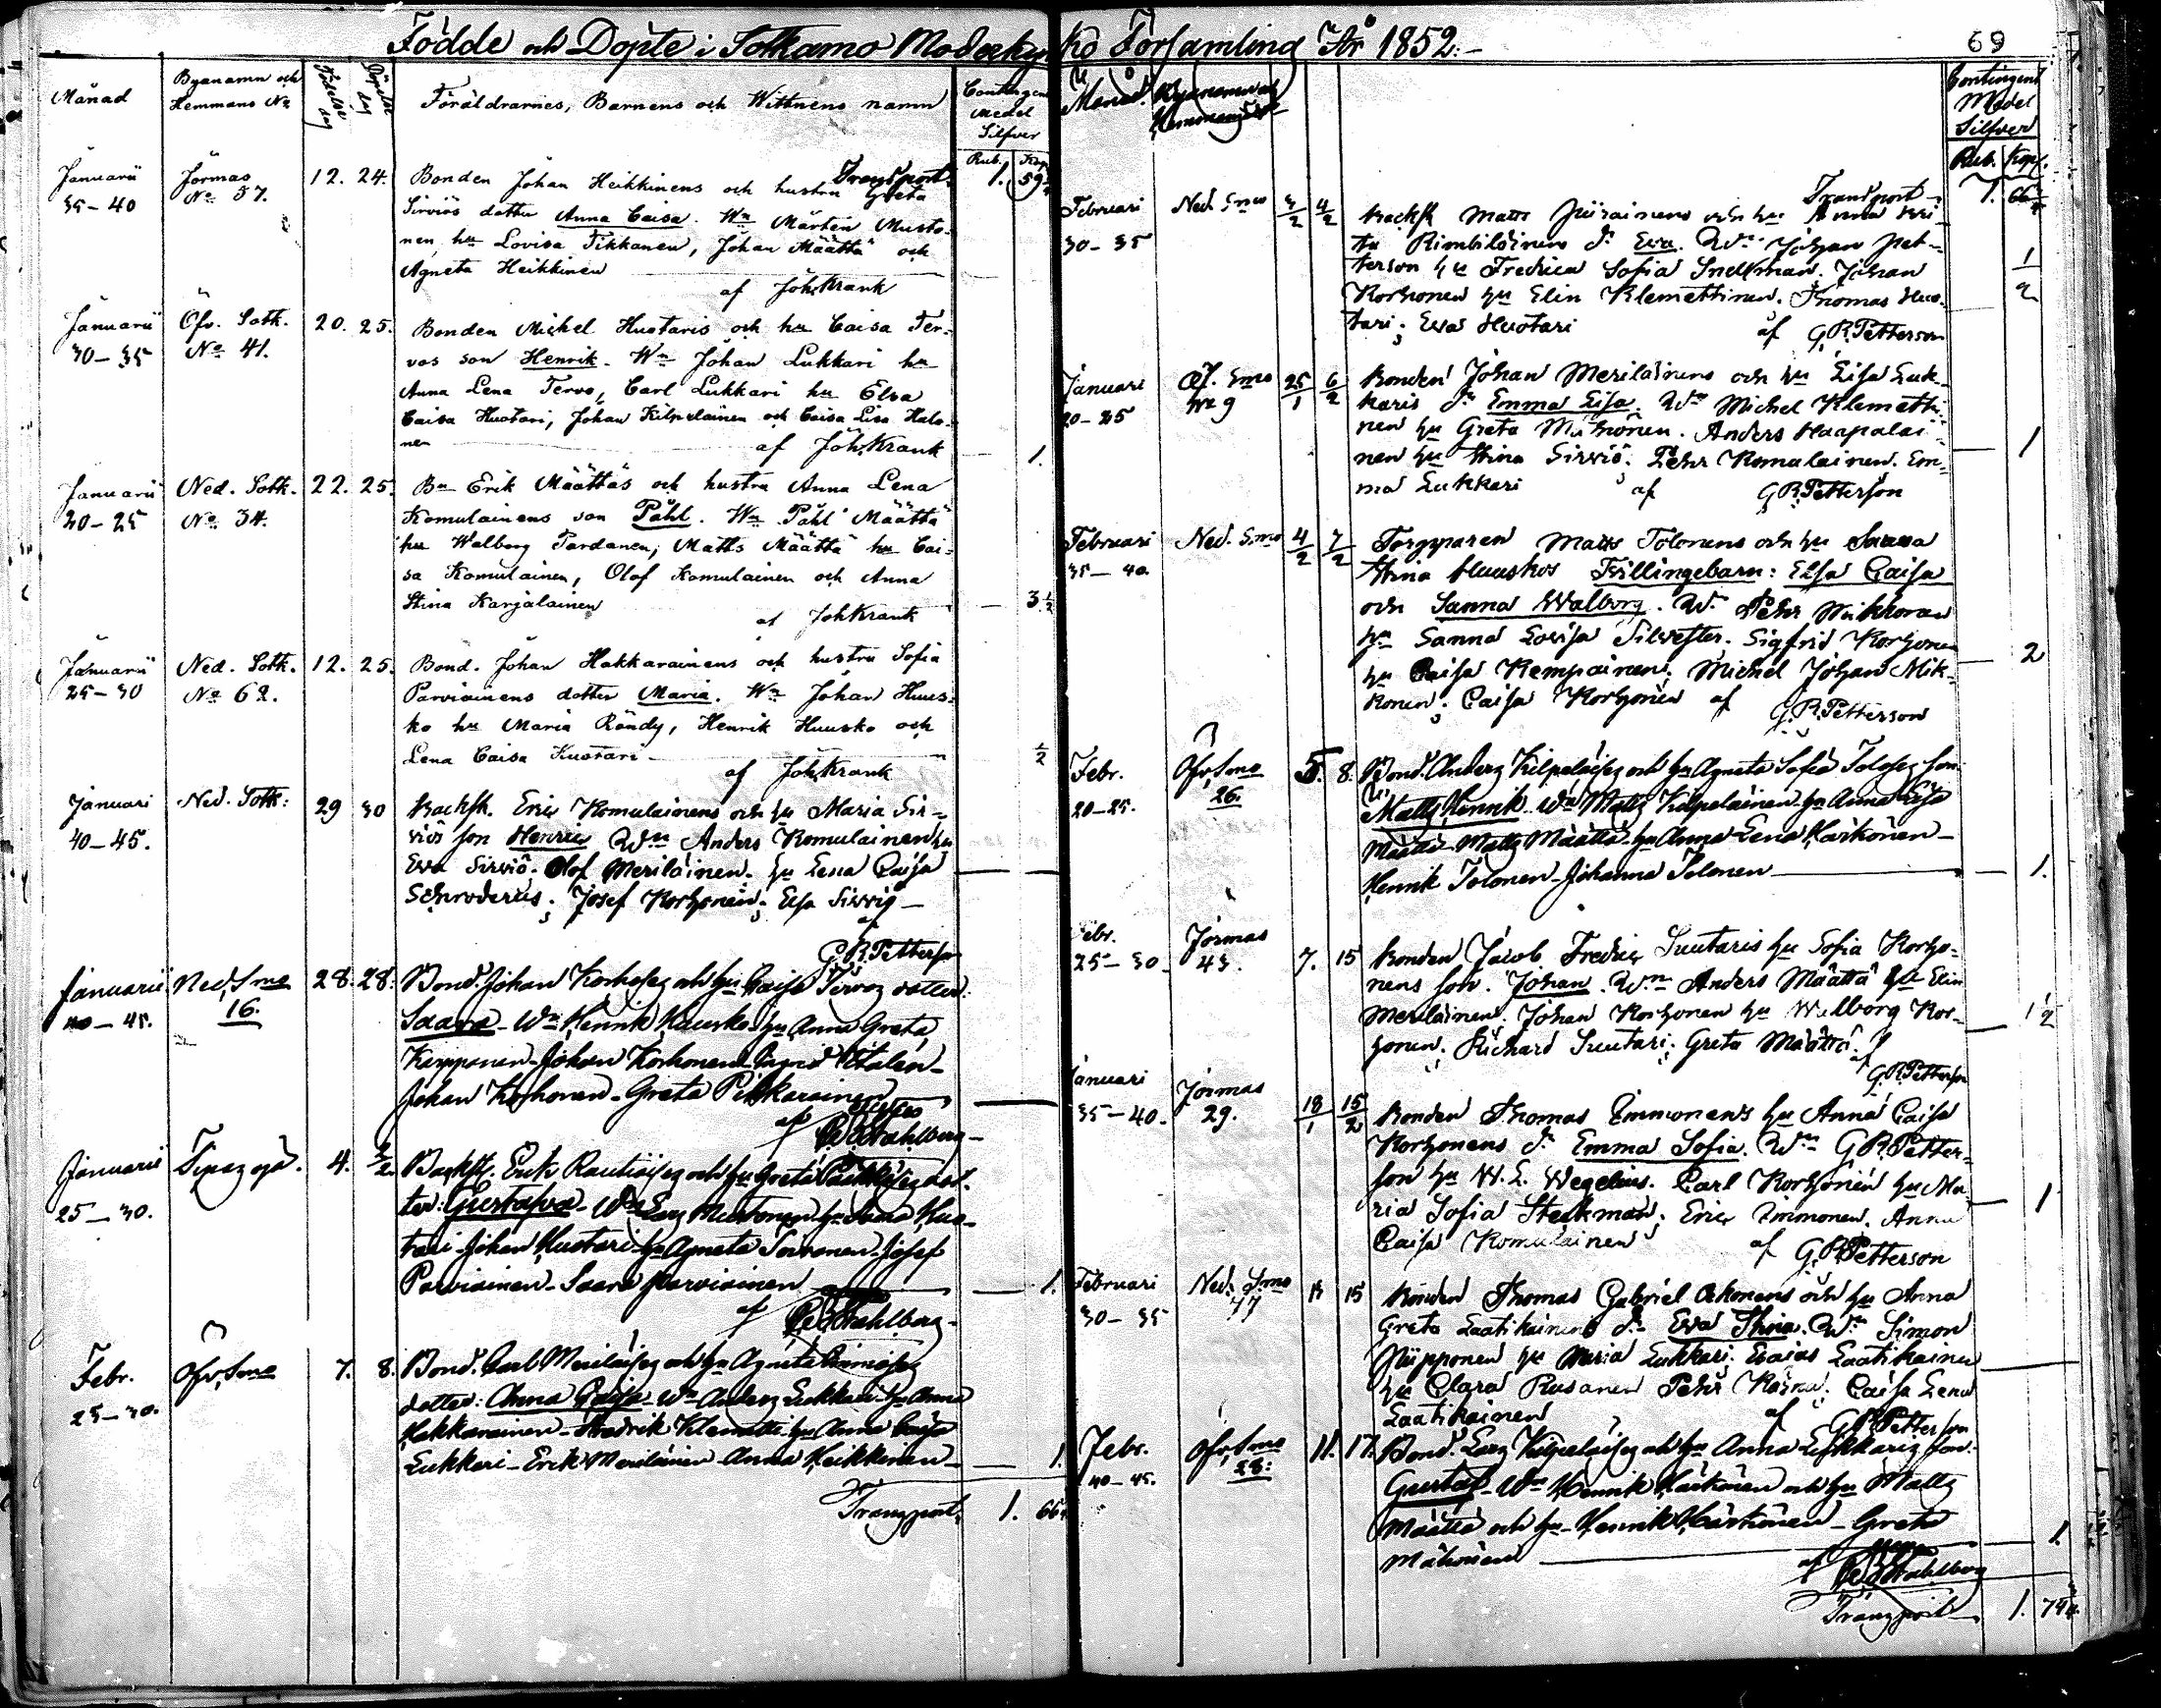 Födde och Döpte i Sotkamo Moderkyrko Församling År 1852.
69
Månad
Byanamn och
Hemmans No
Födelse
dag
Döpelse
dag
Föräldrarnes, Barnens och Wittnens namn
Contingent
Medel
Silfver
Rub. Kop.
Januarii
35-40
Jormas
No 37.
12. 24.
Transport 1. 59
Bonden Johan Heikkinens och hustru Greta
Sirviös dotter Anna Caisa. Wn Mårten Musto-
nen hu Lovisa Tikkanen, Johan Määttä och
Agneta Heikkinen
af Joh. Krank
Januarii
30-35
Öfv. Sotk.
No 41.
20. 25.
Bonden Michel Huotaris och hu Caisa Ter-
vos son Henrik. Wn Johan Lukkari hu
Anna Lena Tervo, Carl Lukkari hu Elsa
Caisa Huotari, Johan Kilpeläinen och Caisa Lisa Halo-
nen
af Joh. Krank 1.
Januarii
20-25
Ned. Sotk.
No 34.
22. 25.
Bn Erik Määttäs och hustru Anna Lena
Komulainens son Påhl. Wn Påhl Määttä
hu Walborg Pardanen, Matts Määttä hu Cai-
sa Komulainen, Olof Komulainen och Anna
Stina Karjalainen
af Joh. Krank 3 1/2
Januarii
25-30
Ned. Sotk.
No 62.
12. 25.
Bond. Johan Hakkarainens och hustru Sofia
Parviainens dotter Maria. Wn Johan Huus-
ko hu Maria Rändy, Henrik Huusko och
Lena Caisa Huotari 1/2
af Joh. Krank
Januari
40-45.
Ned. Sotk:
29 30
Backst. Eric Komulainens och hu Maria Sir-
viös son Henric Wn Anders Komulainen hu
Eva Sirviö. Olof Meriläinen. hu Lena Caisa
Schroderus. Josef Korhonen. Elsa Sirviö
af
G.R. Petterson
Januarii
40-45.
Ned, Smo
16.
28. 28.
Bond. Johan Korhoses och hu Caisa Tervos dotter:
Saara - Wn Henrik Huusko hu Anna Greta
Kemppanen - Johan Korhonen Ingrid
Johan Korhonen - Greta Pikkarainen
af Stahlberg
Januarii
25-30.
Tipasoja.
4. 2/2
Backst. Erik Rautiaises och hu Greta dot-
ter: Gustafva - Wn Lars Mustonen hu Anna Huo-
tari - Johan Huotari hu Agneta Soivonen - Josef
Parviainen - Saara Parviainen 1.
af Stahlberg
Febr.
25-30.
Öfv, Smo
7. 8.
Bond. Carl Meriläises och hu Agneta
dotter: Anna Caisa - Wn Anders Lukkari hu Anna
Hakkarainen - Fredrik Klemetti hu Anna Caisa
Lukkari - Erik Meriläinen - Anna Heikkinen 1.
Transport, 1. 66
Månad. Byanamn och
Hemmans No
Contingent
Medel
Silfver
Rub. Kop.
Transport 1. 66
Februari
30-35
Ned. Smo
3/2 4/2
Backst Matts Piirainens och hu Anna Kri
ta Rimbiläinens dr Eva. Wn Johan Pet-
terson hu Fredrica Sofia Snellman. Johan
Korhonen hu Elin Klemettinen. Thomas Huo-
tari. Eva Huotari
af G.R. Petterson
1/2
Januari
20-25
Öf. Smo
No 9
25/1 6/2
Bonden Johan Meriläinens och hu Lisa Luk-
karis dr Emma Lisa. Wn Michel Klemetti-
nen hu Greta Mähönen. Anders Haapalai-
nen hu Stina Sirviö. Pehr Komulainen. Em-
ma Lukkari
af G.R. Petterson
1
Februari
35-40.
Ned. Smo
4/2 7/2
Torpparen Matts Tolonens och hu Sanna
Stina Huuskos Tvillingebarn: Elsa Caisa
och Sanna Walborg. Wn Pehr Mikkonen
hu Sanna Lovisa Silvester. Sigfrid Korhonen
hu Caisa Kempainen. Michel Johan Mik-
konen. Caisa Korhonen af
G.R. Petterson
2
Febr.
20-25.
Öfv, Smo
26.
5. 8.
Bond. Anders Kilpeläises och hu Agneta Sofia Toloses son:
Matts Henrik. Wn Matts Kilpeläinen hu Anna Lisa
Määttä - Matts Määttä hu Anna Lena Härkönen -
Henrik Tolonen - Johanna Tolonen 1.
Febr.
25-30.
Jormas
43.
7. 15
Bonden Jacob Fredric Suutaris hu Sofia Korho-
nens son. Johan. Wn Anders Määttä hu Elin
Meriläinen. Johan Korhonen hu Walborg Kor-
honen. Richard Suutari. Greta Määttä. 1/2
af
G.R. Petterson
Januari
35-40.
Jormas
29.
18/1 15/2
Bonden Thomas Timmonens hu Anna Caisa
Korhonens dr Emma Sofia. Wn G.R. Petter-
son hu W. L. Wegelius. Carl Korhonen hu Ma-
ria Sofia Steckman. Eric Timmonen. Anna
Caisa Komulainen
af G.R. Petterson
1
Februari
30-35
Ned. Smo
77
11 15
Bonden Thomas Gabriel Okonens och hu Anna
Greta Laatikainens dr Eva Stina. Wn Simon
Piipponen hu Maria Lukkari. Esaias Laatikainen
hu Clara Rusanen Pehr Kärnä. Caisa Lena
Laatikainen
af G.R. Petterson
Febr.
40-45.
Öfv, Smo
28:
11. 17.
Bond. Lars Kilpeläises och hu Anna Lukkaris son.
Gustaf - Wn Henrik Härkönen och hu Matts
Määttä och hu - Henrik Härkönen - Greta
Mähönen 1.
af Stahlberg
Transport 1. 74